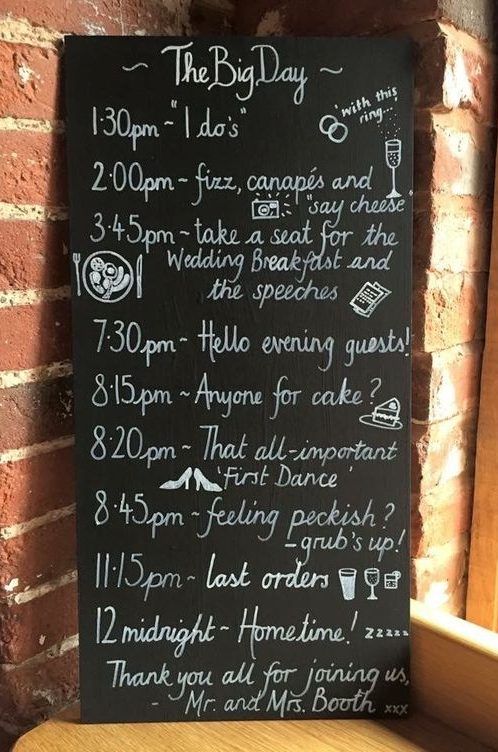 ~ The Big Day ~
1:30pm ~ "I do's"
"with this
ring...
2:00pm ~ fizz, canapés and
"say cheese"
3.45pm ~ take a seat for the
Wedding Breakfast and
the speeches
7:30pm ~ Hello evening guests!
8:15pm ~ Anyone for cake?
8:20pm ~ That all-important
'First Dance'
8.45pm ~ feeling peckish?
- grub's up!
11.15pm ~ last orders
12 midnight ~ Hometime! zzzzz
Thank you all for joining us,
- Mr. and Mrs. Booth xxx